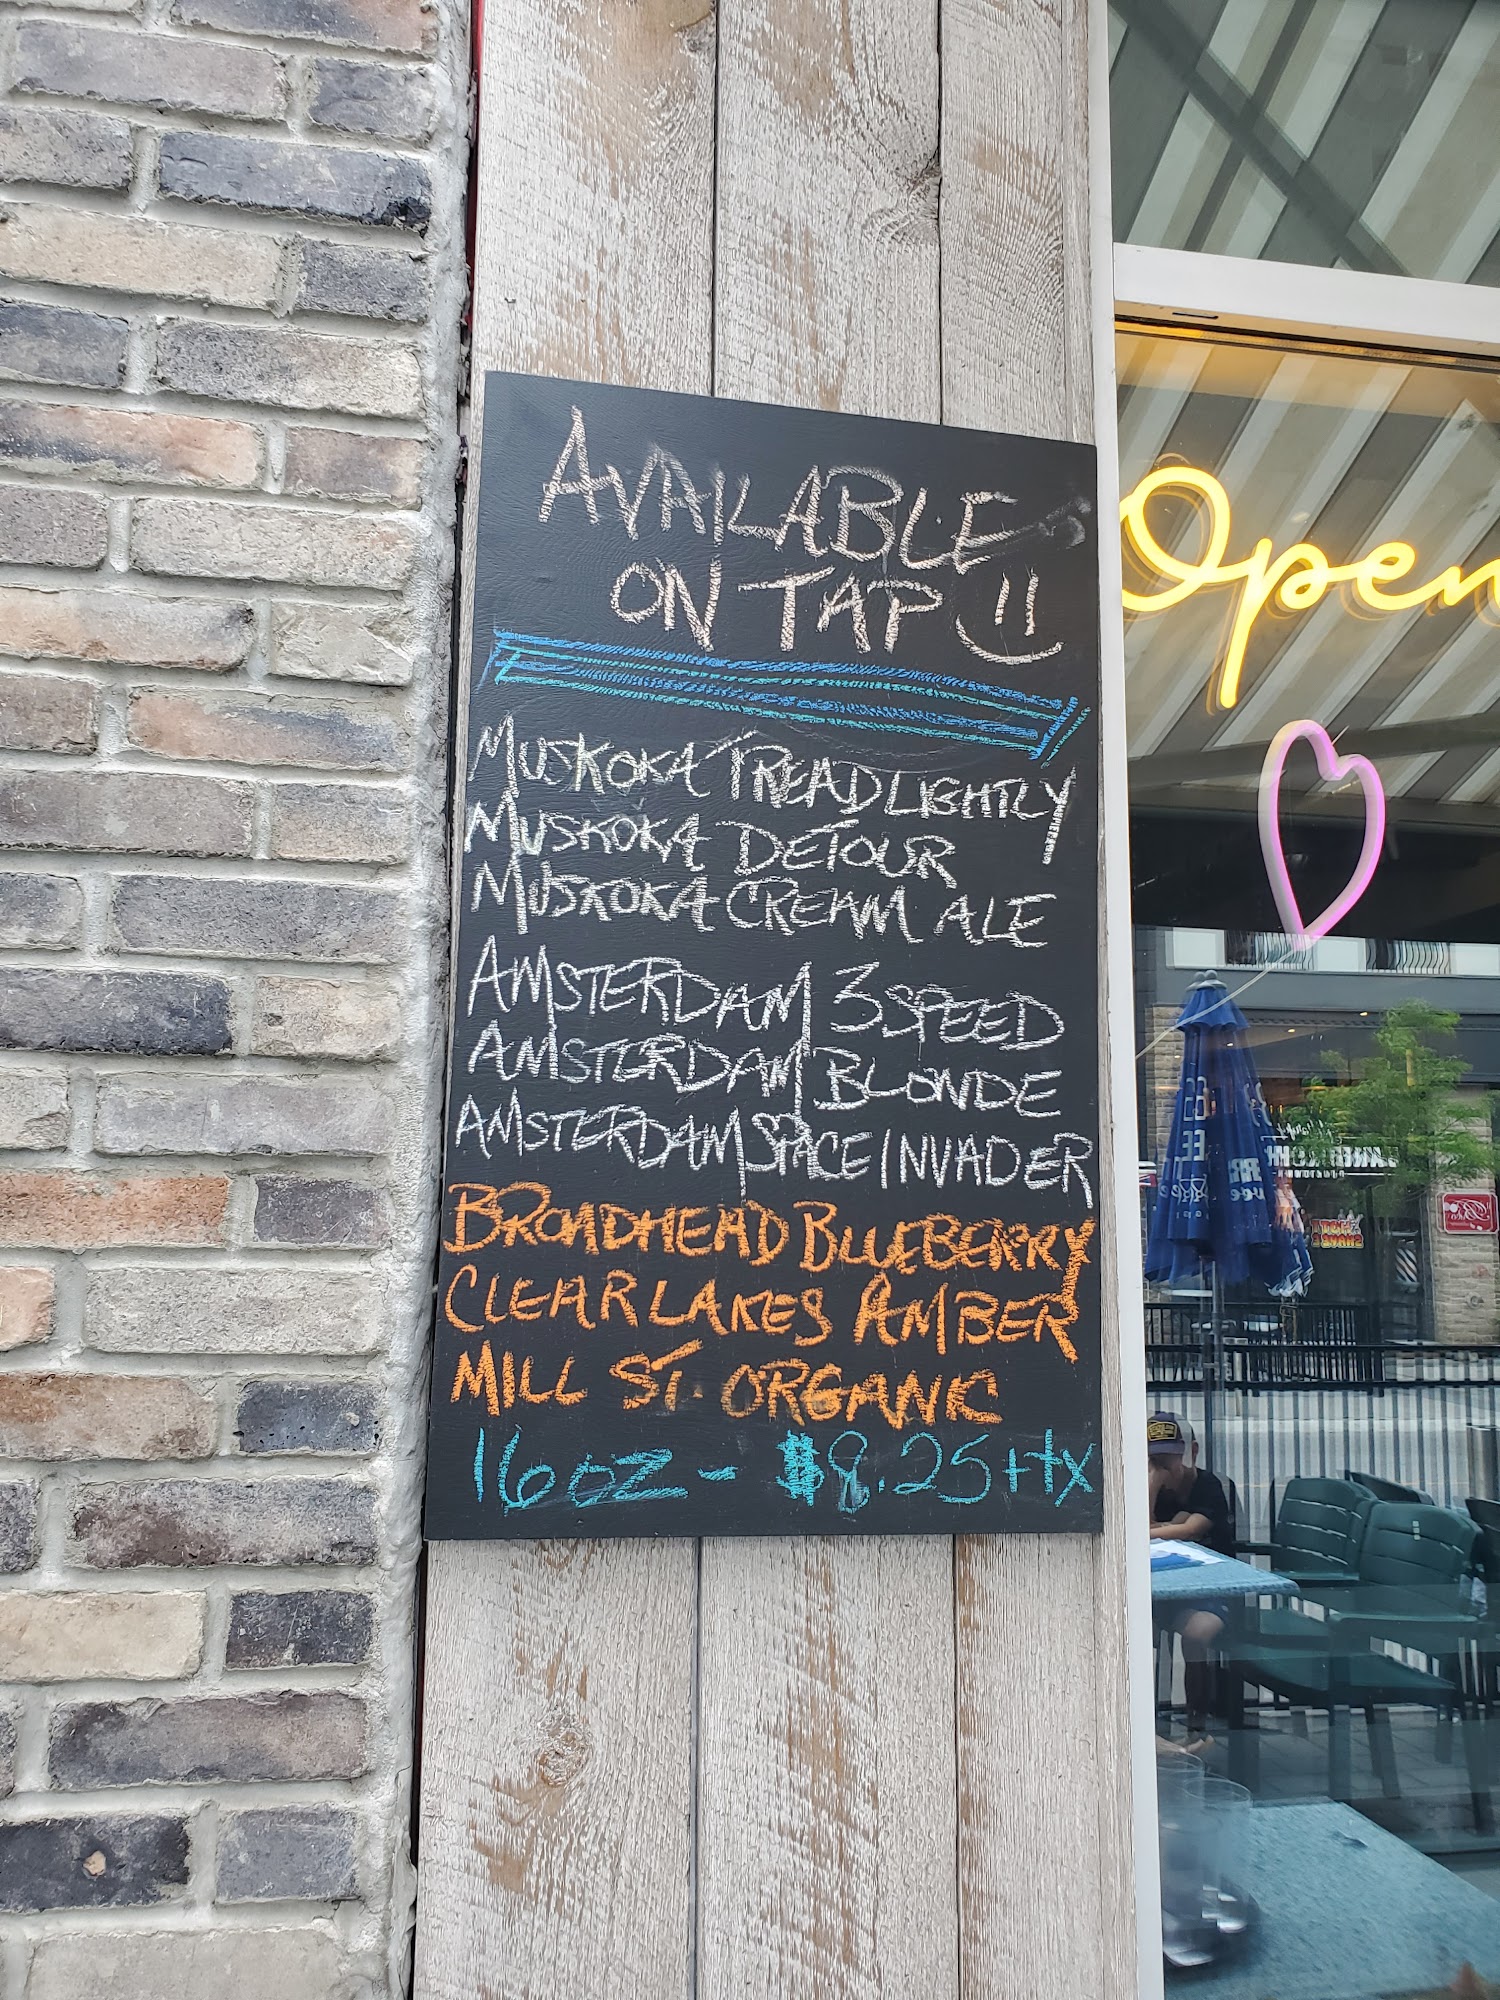 AVAILABLE
ON TAP
MUSKOKA TREAD LIGHTLY
MUSKOKA DETOUR
MUSKOKA CREAM ALE
AMSTERDAM 3 SPEED
AMSTERDAM BLONDE
AMSTERDAM SPACE INVADER
BROADHEAD BLUEBERRY
CLEAR LAKES AMBER
MILL ST. ORGANIC
16oz - $8.25+tx
Open